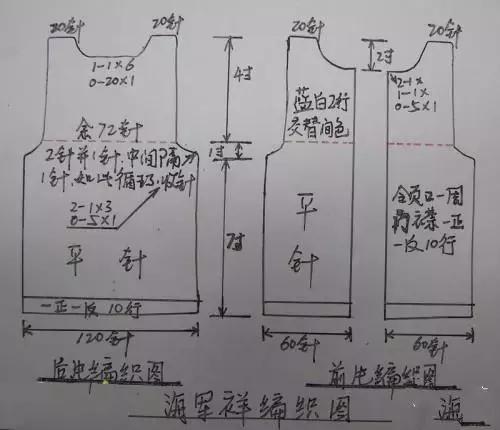 20针 20针
1-1×6
0-20×1
余72针
2针并1针,中间隔
1针,如此循环,收针
2-1×3
0-5×1
平 针
一正一反10行
120针
后片编织图
4寸
1寸
7寸
20针
蓝白2行
交替间色
平
针
60针
20针
2寸
2-1×
1-1×
0-5×1
一周
衣襟一正
一反10行
60针
前片编织图
海军祥编织图